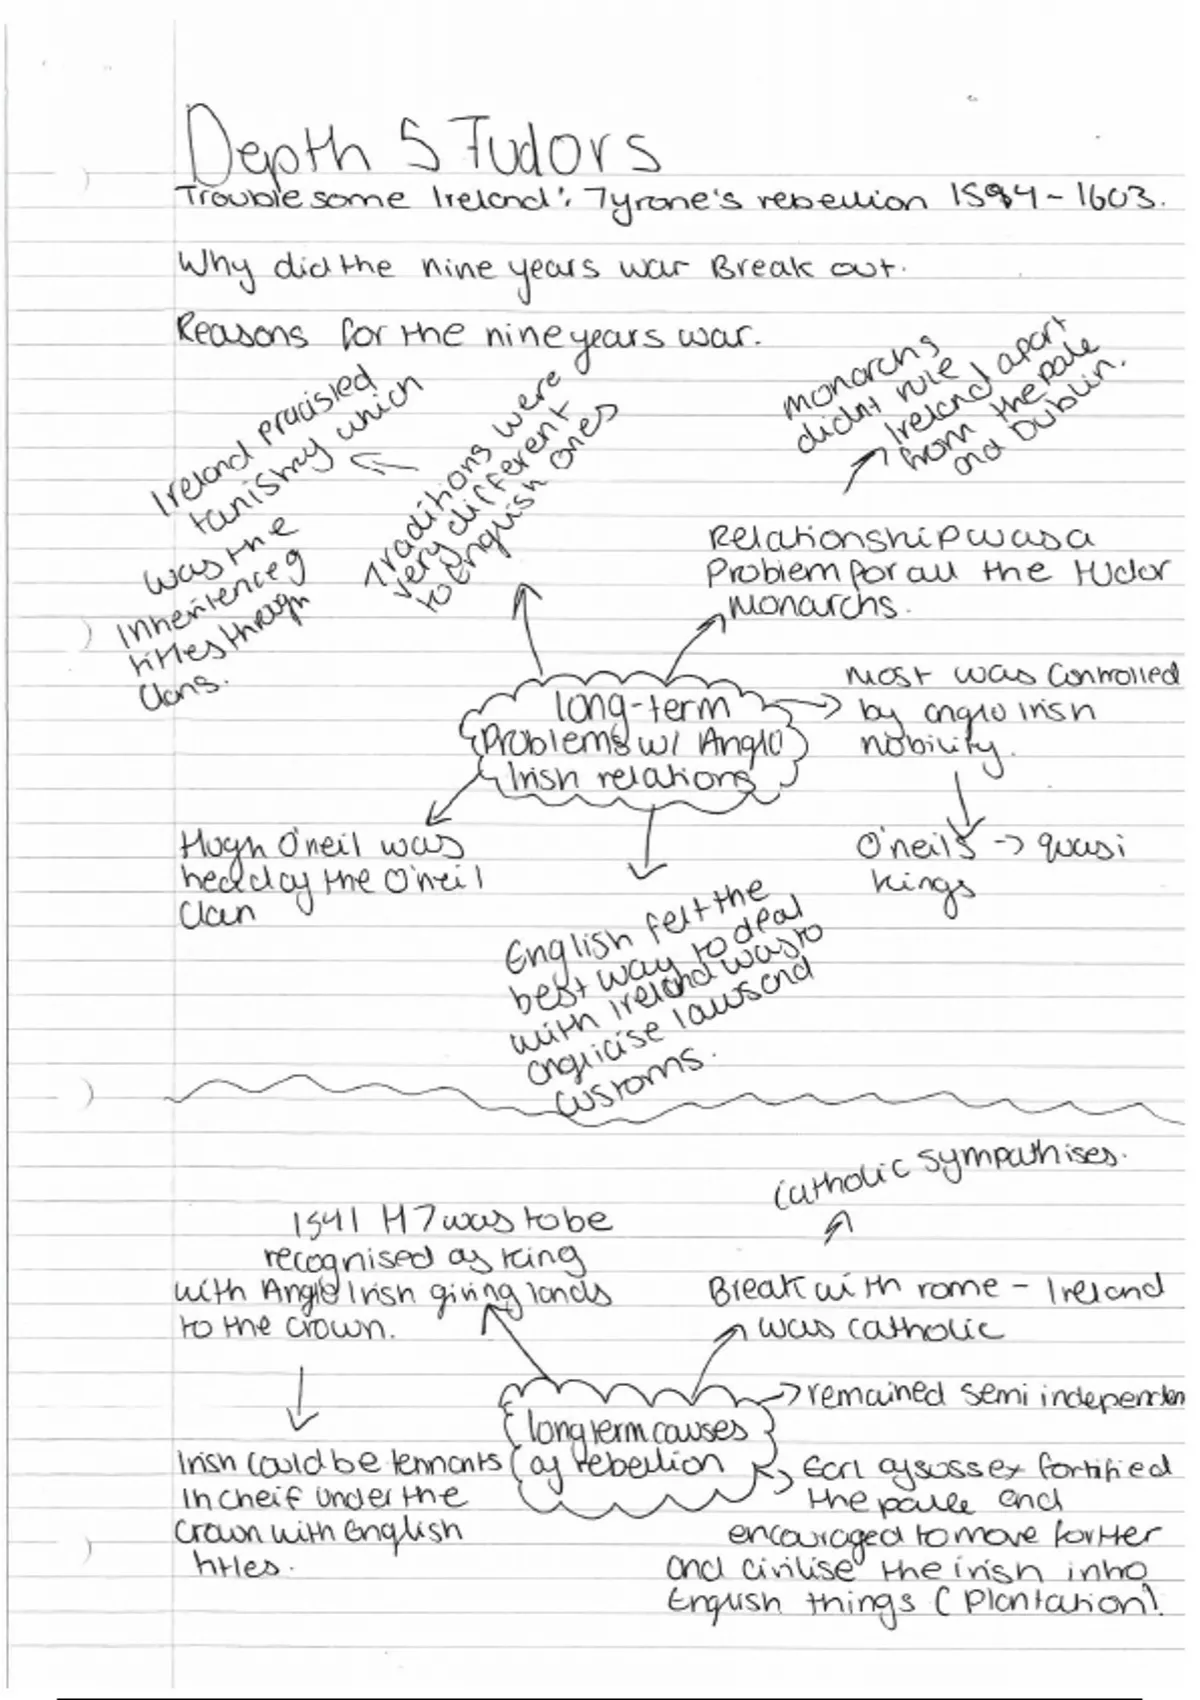 Depth 5 Tudors
Troublesome Ireland': Tyrone's rebellion 1594-1603.
Why did the nine years war Break out.
Reasons for the nine years war.
Ireland pracisled
tanistry which
was the
Inheritence of
titles through
Clans.
Traditions were
very different
to English ones
monarchs
didnt rule
Ireland apart
from the pale
and Dublin.
Relationship was a
Problem for all the tudor
Monarchs.
long-term
Problems w/ Anglo
Irish relations
Most was Controlled
by anglo Irish
nobility.
O'neils -> quasi
kings
Hugh O'neil was
head of the O'neil
Clan
English felt the
best way to deal
with Ireland was to
anglicise laws and
customs.
1541 H7 was to be
recognised as King
with Anglo Irish giving lands
to the crown.
Irish could be tennants
in cheif under the
crown with English
titles.
Catholic sympathises.
Break with rome - Ireland
was catholic
long term causes
of rebellion
remained semi independen
Earl of sussex fortified
the pale and
encouraged to move forther
and civilise the irish into
English things (Plantation).